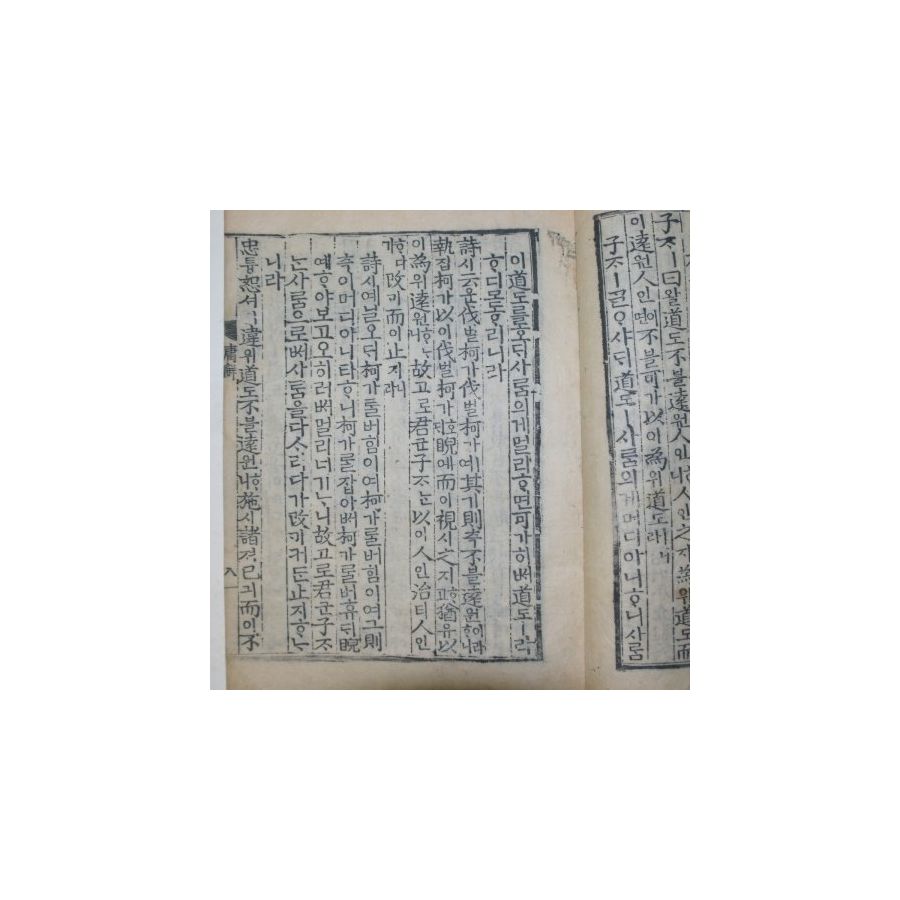 子ᄌᆞㅣ曰왈道도不블遠원人인ᄒᆞ니人인之지爲위道도而
이遠원人인이면不블可가以이爲위道도ㅣ니라
子ᄌᆞㅣᄀᆞᄅᆞ샤ᄃᆡ道도ㅣ사ᄅᆞᆷ의게머디아니ᄒᆞ니사ᄅᆞᆷ
이道도를호ᄃᆡ사ᄅᆞᆷ의게멀리ᄒᆞ면可가히ᄡᅥ道도ㅣ라
ᄒᆞ디몯ᄒᆞ리니라
詩시云운伐벌柯가伐벌柯가여其기則측不블遠원이라ᄒᆞ니
執집柯가以이伐벌柯가호ᄃᆡ睨예而이視시之지ᄒᆞ고猶유以
이爲위遠원ᄒᆞᄂᆞ니故고로君군子ᄌᆞᄂᆞᆫ以이人인治티人인
ᄒᆞ다가改ᄀᆡ而이止지니라
詩시예닐오ᄃᆡ柯가ᄅᆞᆯ버힘이여柯가ᄅᆞᆯ버힘이여그則
측이머디아니타ᄒᆞ니柯가ᄅᆞᆯ잡아ᄡᅥ柯가ᄅᆞᆯ버휴ᄃᆡ睨
예ᄒᆞ야보고오히려ᄡᅥ멀리너기ᄂᆞ니故고로君군子ᄌᆞ
ᄂᆞᆫ사ᄅᆞᆷ으로ᄡᅥ사ᄅᆞᆷ을다ᄉᆞ리다가改ᄀᆡ커든止지ᄒᆞᄂᆞ
니라
忠튱恕셔ㅣ違위道도不블遠원ᄒᆞ니施시諸져己긔而이不
庸解
八